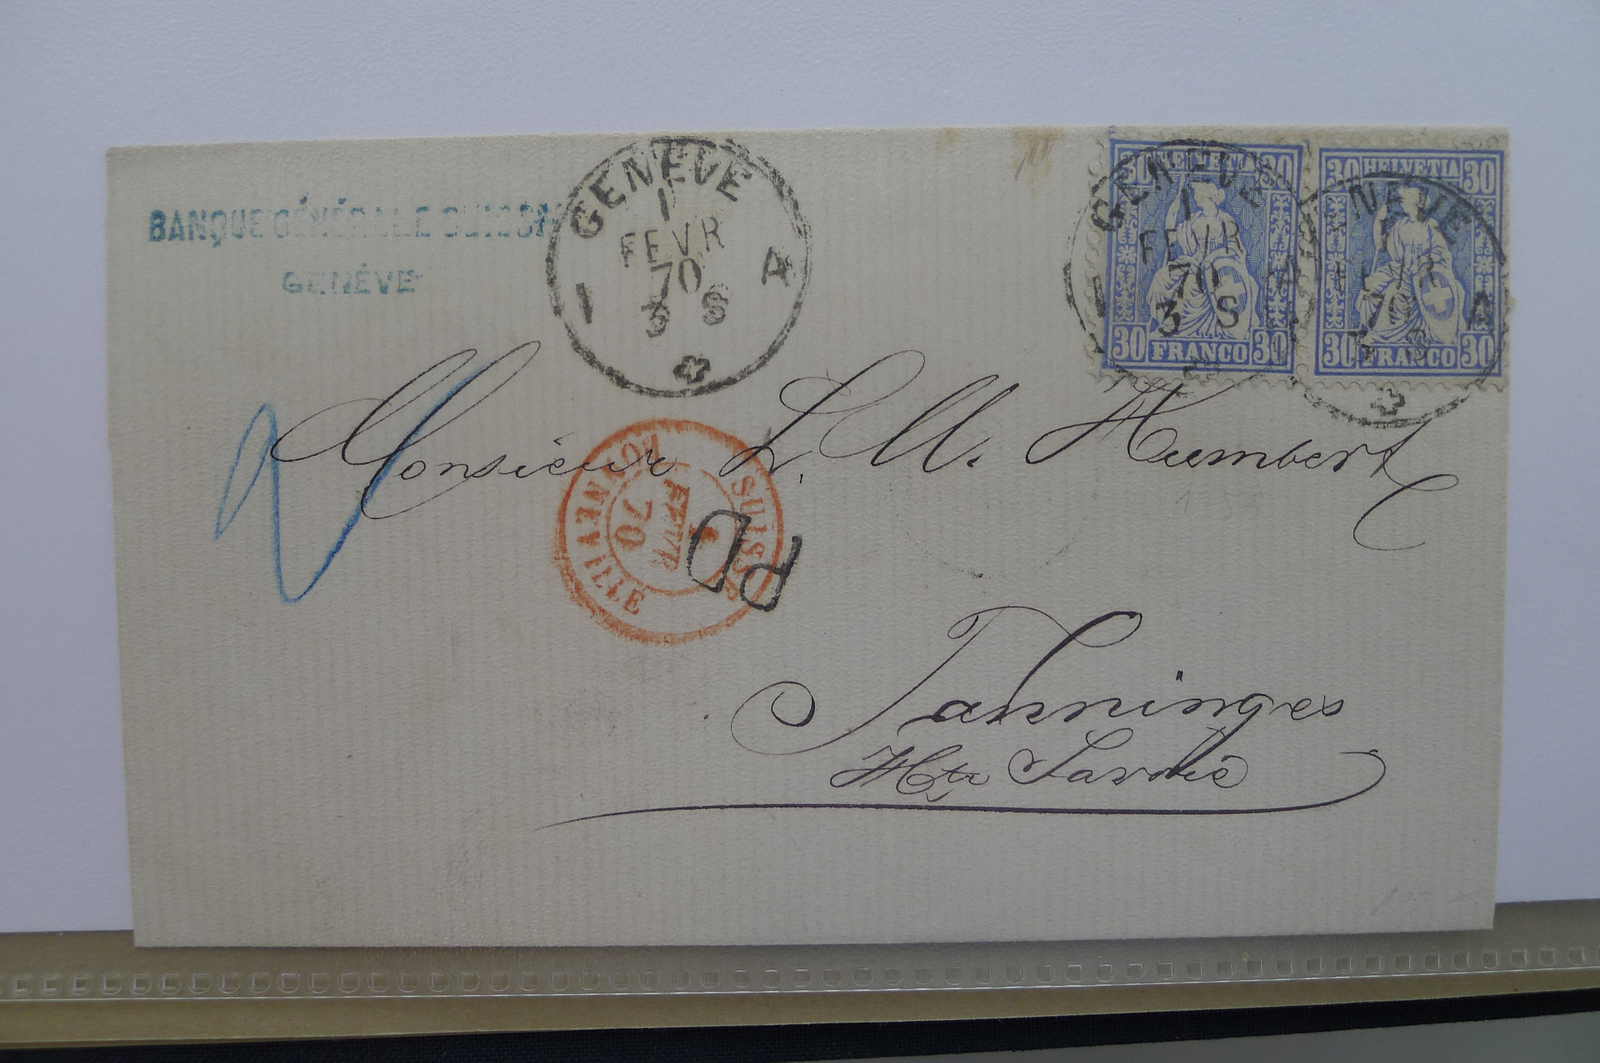 BANQUE GÉNÉRALE SUISSE
GENÈVE
GENÈVE
1
FEVR
70
3 S
I A
30 HELVETIA 30
30 FRANCO 30
GENÈVE
1
FEVR
70
3 S
I
30 HELVETIA 30
30 FRANCO 30
GENÈVE
1
FEVR
70
A
2
Monsieur L. M. Humbert
SUISSE
FEVR
70
BONNEVILLE
PD
Tanninges
Hte Savoie